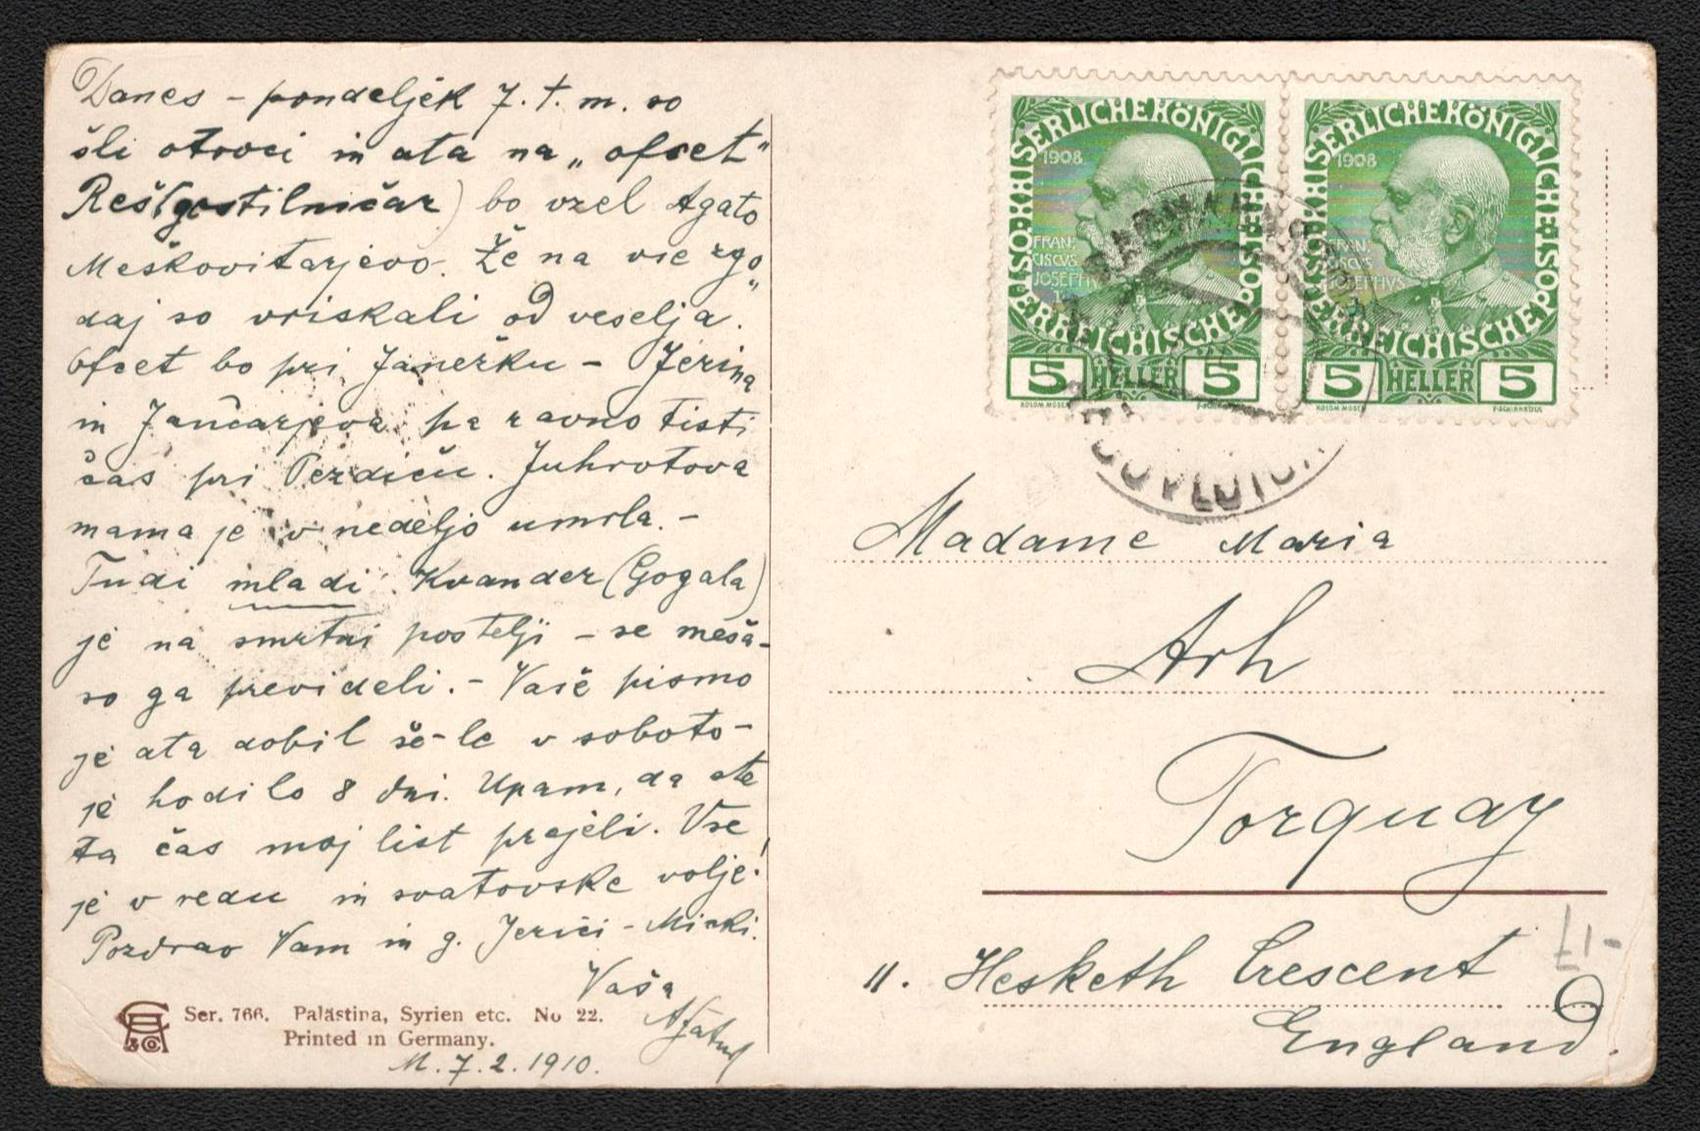 Danes - pondeljek 7. t. m. so
šli otroci in ata na „ofset"
Reš (gostilničar) bo vzel Agato
Meškovitarjevo. Že na vse zgo„
daj so vriskali od veselja.
Ofset bo pri Janeržku - Jerina
in Jančarjeva pa ravno tisti
čas pri Perdiču. Juhrotova
mama je v nedeljo umrla. -
Tudi mladi Kvander (Gogala)
je na smrtni postelji - se meša -
so ga prevideli. - Vaše pismo
je ata dobil še-le v soboto -
je hodilo 8 dni. Upam, da ste
ta čas moj list prejeli. Vse
je v redu in svatovske volje!
Pozdrav Vam in g. Jerici - Micki.
Vaša
Ser. 766. Palästina, Syrien etc. No 22.
Printed in Germany.
M. 7.2.1910.
KAISERLICHE KÖNIGLICHE ÖSTERREICHISCHE POST
1908
FRAN:
CISCVS
JOSEPHVS
I
5 HELLER 5
KOLOM. MOSER
KAISERLICHE KÖNIGLICHE ÖSTERREICHISCHE POST
1908
FRAN:
CISCVS
JOSEPHVS
5 HELLER 5
KOLOM. MOSER
F. SCHIRNBÖCK
Madame Maria
Arh
Torquay
11. Hesketh Crescent
England.